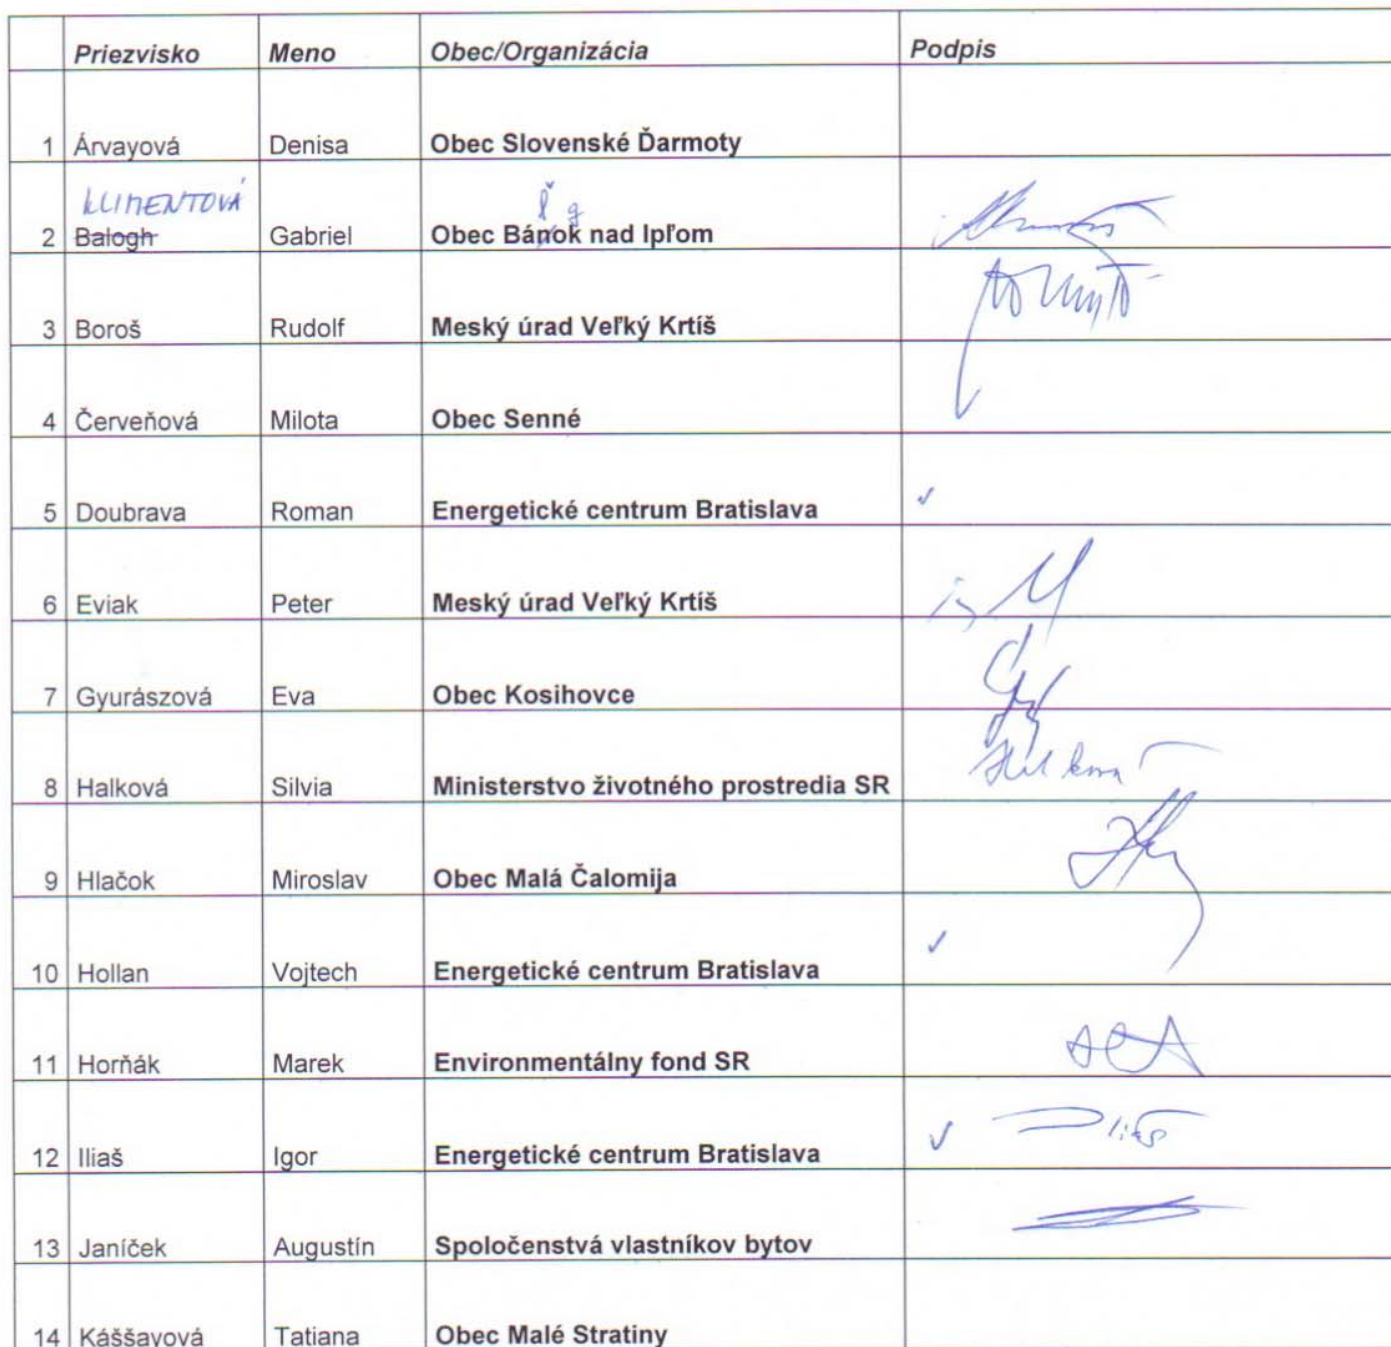 Priezvisko Meno Obec/Organizácia Podpis
1 Árvayová Denisa Obec Slovenské Ďarmoty
KLIMENTOVÁ
2 Balogh Gabriel Obec Bánok nad Ipľom
3 Boroš Rudolf Meský úrad Veľký Krtíš
4 Červeňová Milota Obec Senné
5 Doubrava Roman Energetické centrum Bratislava
6 Eviak Peter Meský úrad Veľký Krtíš
7 Gyurászová Eva Obec Kosihovce
8 Halková Silvia Ministerstvo životného prostredia SR
9 Hlačok Miroslav Obec Malá Čalomija
10 Hollan Vojtech Energetické centrum Bratislava
11 Horňák Marek Environmentálny fond SR
12 Iliaš Igor Energetické centrum Bratislava
13 Janíček Augustín Spoločenstvá vlastníkov bytov
14 Káššayová Tatiana Obec Malé Stratiny